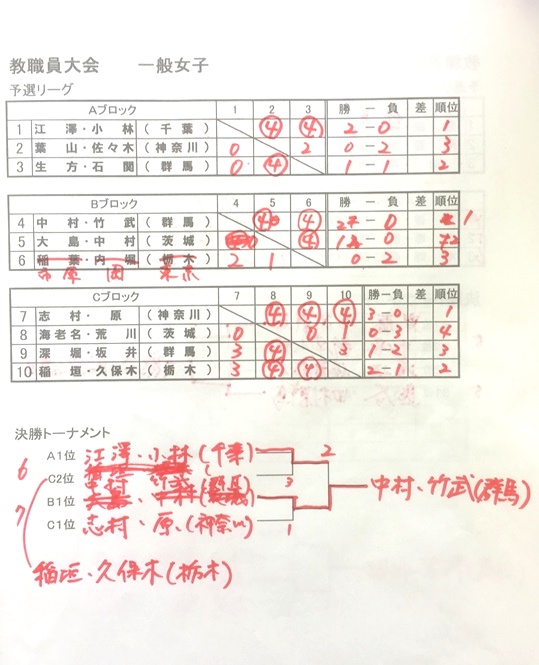 教職員大会 一般女子
予選リーグ
Aブロック 1 2 3 勝 ー 負 差 順位
1 江澤・小林 (千葉) ④ ④ 2 - 0 1
2 葉山・佐々木 (神奈川) 0 2 0 - 2 3
3 生方・石関 (群馬) 0 ④ 1 - 1 2
Bブロック 4 5 6 勝 ー 負 差 順位
4 中村・竹武 (群馬) ④ ④ 2 - 0 1
5 大島・中村 (茨城) ④ 1 - 0 2
6 稲葉・内堀 (栃木) 2 1 0 - 2 3
東京
Cブロック 7 8 9 10 勝ー負 差 順位
7 志村・原 (神奈川) ④ ④ ④ 3-0 1
8 海老名・荒川 (茨城) 0 0 1 0-3 4
9 深堀・坂井 (群馬) 3 ④ 3 1-2 3
10 稲垣・久保木 (栃木) 3 ④ ④ 2-1 2
決勝トーナメント
A1位 江澤・小林(千葉) 2
6 C2位 3
中村、竹武(群馬)
7 B1位 大島・中村(茨城)
C1位 志村、原(神奈川) 1
稲垣、久保木(栃木)